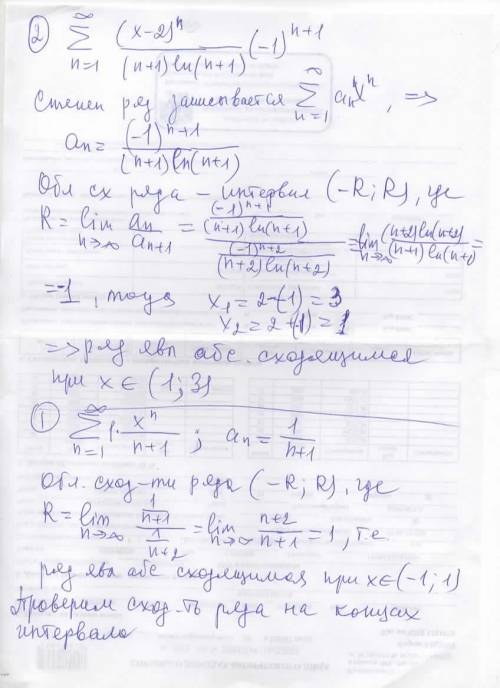 ② ∑_{n=1}^{∞} (x-2)^n / ((n+1) ln(n+1)) (-1)^{n+1}
Степен ряд записывается ∑_{n=1}^{∞} a_n x^n, =>
a_n = (-1)^{n+1} / ((n+1) ln(n+1))
Обл сх ряда – интервал (-R; R), где
R = lim_{n→∞} a_n / a_{n+1} = ((-1)^{n+1} / ((n+1) ln(n+1))) / ((-1)^{n+2} / ((n+2) ln(n+2))) = lim_{n→∞} ((n+2) ln(n+2)) / ((n+1) ln(n+1)) =
= -1, тогда x₁ = 2-(-1) = 3
x₂ = 2+(-1) = 1
=> ряд явл абс. сходящимся
при x ∈ (1; 3)
① ∑_{n=1}^{∞} 1· x^n / (n+1) ; a_n = 1 / (n+1)
Обл. сход-ти ряда (-R; R), где
R = lim_{n→∞} (1/(n+1)) / (1/(n+2)) = lim_{n→∞} (n+2) / (n+1) = 1, т.е.
ряд явл абс сходящимся при x ∈ (-1; 1)
Проверим сход-ть ряда на концах
интервала